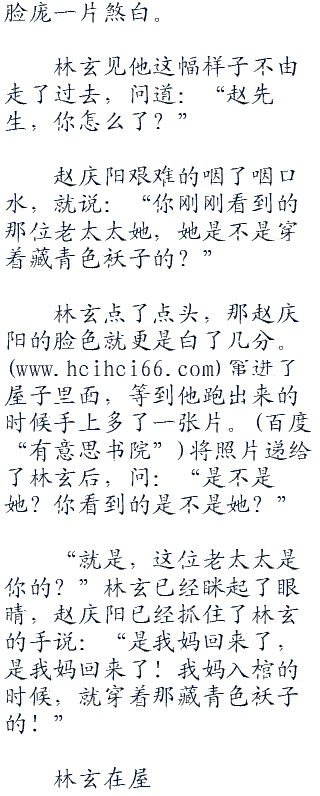 脸庞一片煞白。
林玄见他这幅样子不由
走了过去，问道：“赵先
生，你怎么了？”
赵庆阳艰难的咽了咽口
水，就说：“你刚刚看到的
那位老太太她，她是不是穿
着藏青色袄子的？”
林玄点了点头，那赵庆
阳的脸色就更是白了几分。
(www.hcihci66.com)窜进了
屋子里面，等到他跑出来的
时候手上多了一张片。(百度
“有意思书院”)将照片递给
了林玄后，问：“是不是
她？你看到的是不是她？”
“就是，这位老太太是
你的？”林玄已经眯起了眼
睛，赵庆阳已经抓住了林玄
的手说：“是我妈回来了，
是我妈回来了！我妈入棺的
时候，就穿着那藏青色袄子
的！”
林玄在屋